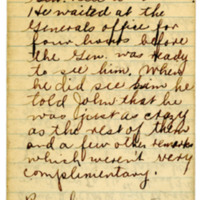 He waited at the
Generals office for
four hours before
the Gen. was ready
to see him. When
he did see him he
told John that he
was just as crazy
as the rest of them
and a few other remarks
which weren't very
complimentary.